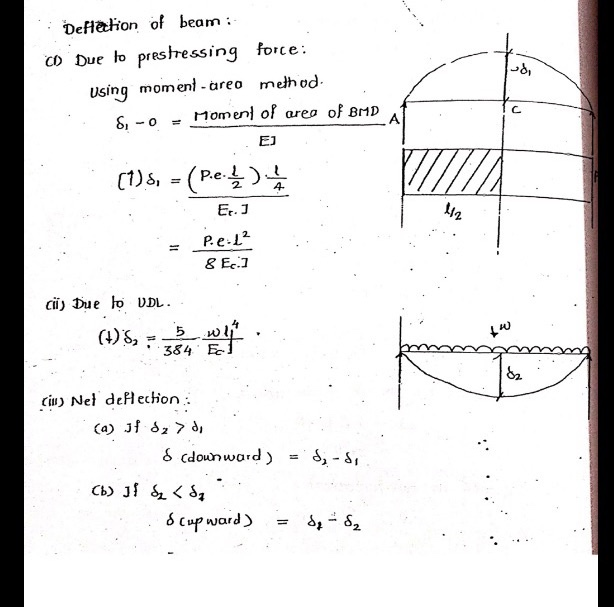 Deflection of beam :
(i) Due to prestressing force :
Using moment-area method.
δ₁ - 0 = Moment of area of BMD / EI
(↑) δ₁ = (P.e. l/2) . l/4 / Ec. I
= P.e.l² / 8 Ec.I
δ₁
A
C
l/2
(ii) Due to UDL.
(↓) δ₂ = 5/384 wl⁴/Ec.I .
↓w
δ₂
(iii) Net deflection :
(a) If δ₂ > δ₁
δ (downward) = δ₂ - δ₁
(b) If δ₂ < δ₁
δ (upward) = δ₁ - δ₂